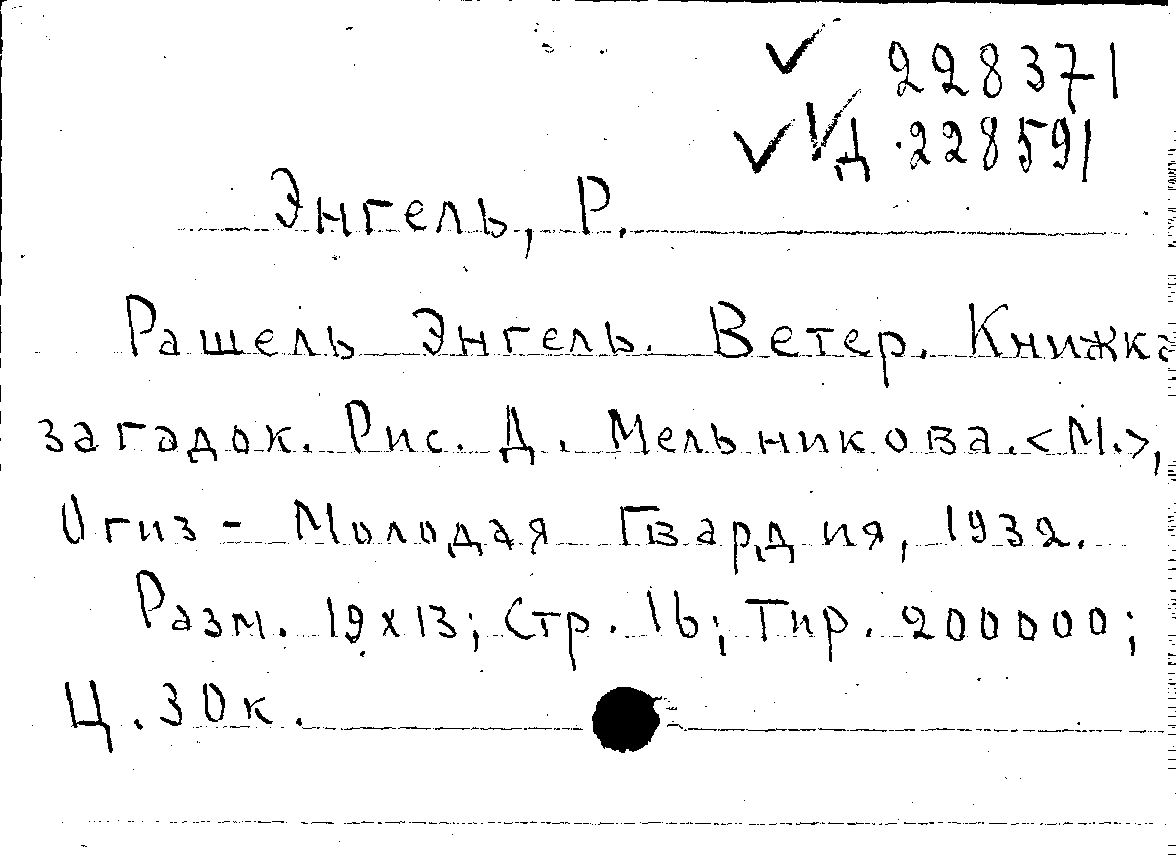 ✓ 228371
✓✓ Д. 228591
Энгель, Р.
Рашель Энгель. Ветер. Книжка
загадок. Рис. Д. Мельникова. <М.>,
Огиз - Молодая Гвардия, 1932.
Разм. 19x13; Стр. 16; Тир. 200000;
Ц. 30к.